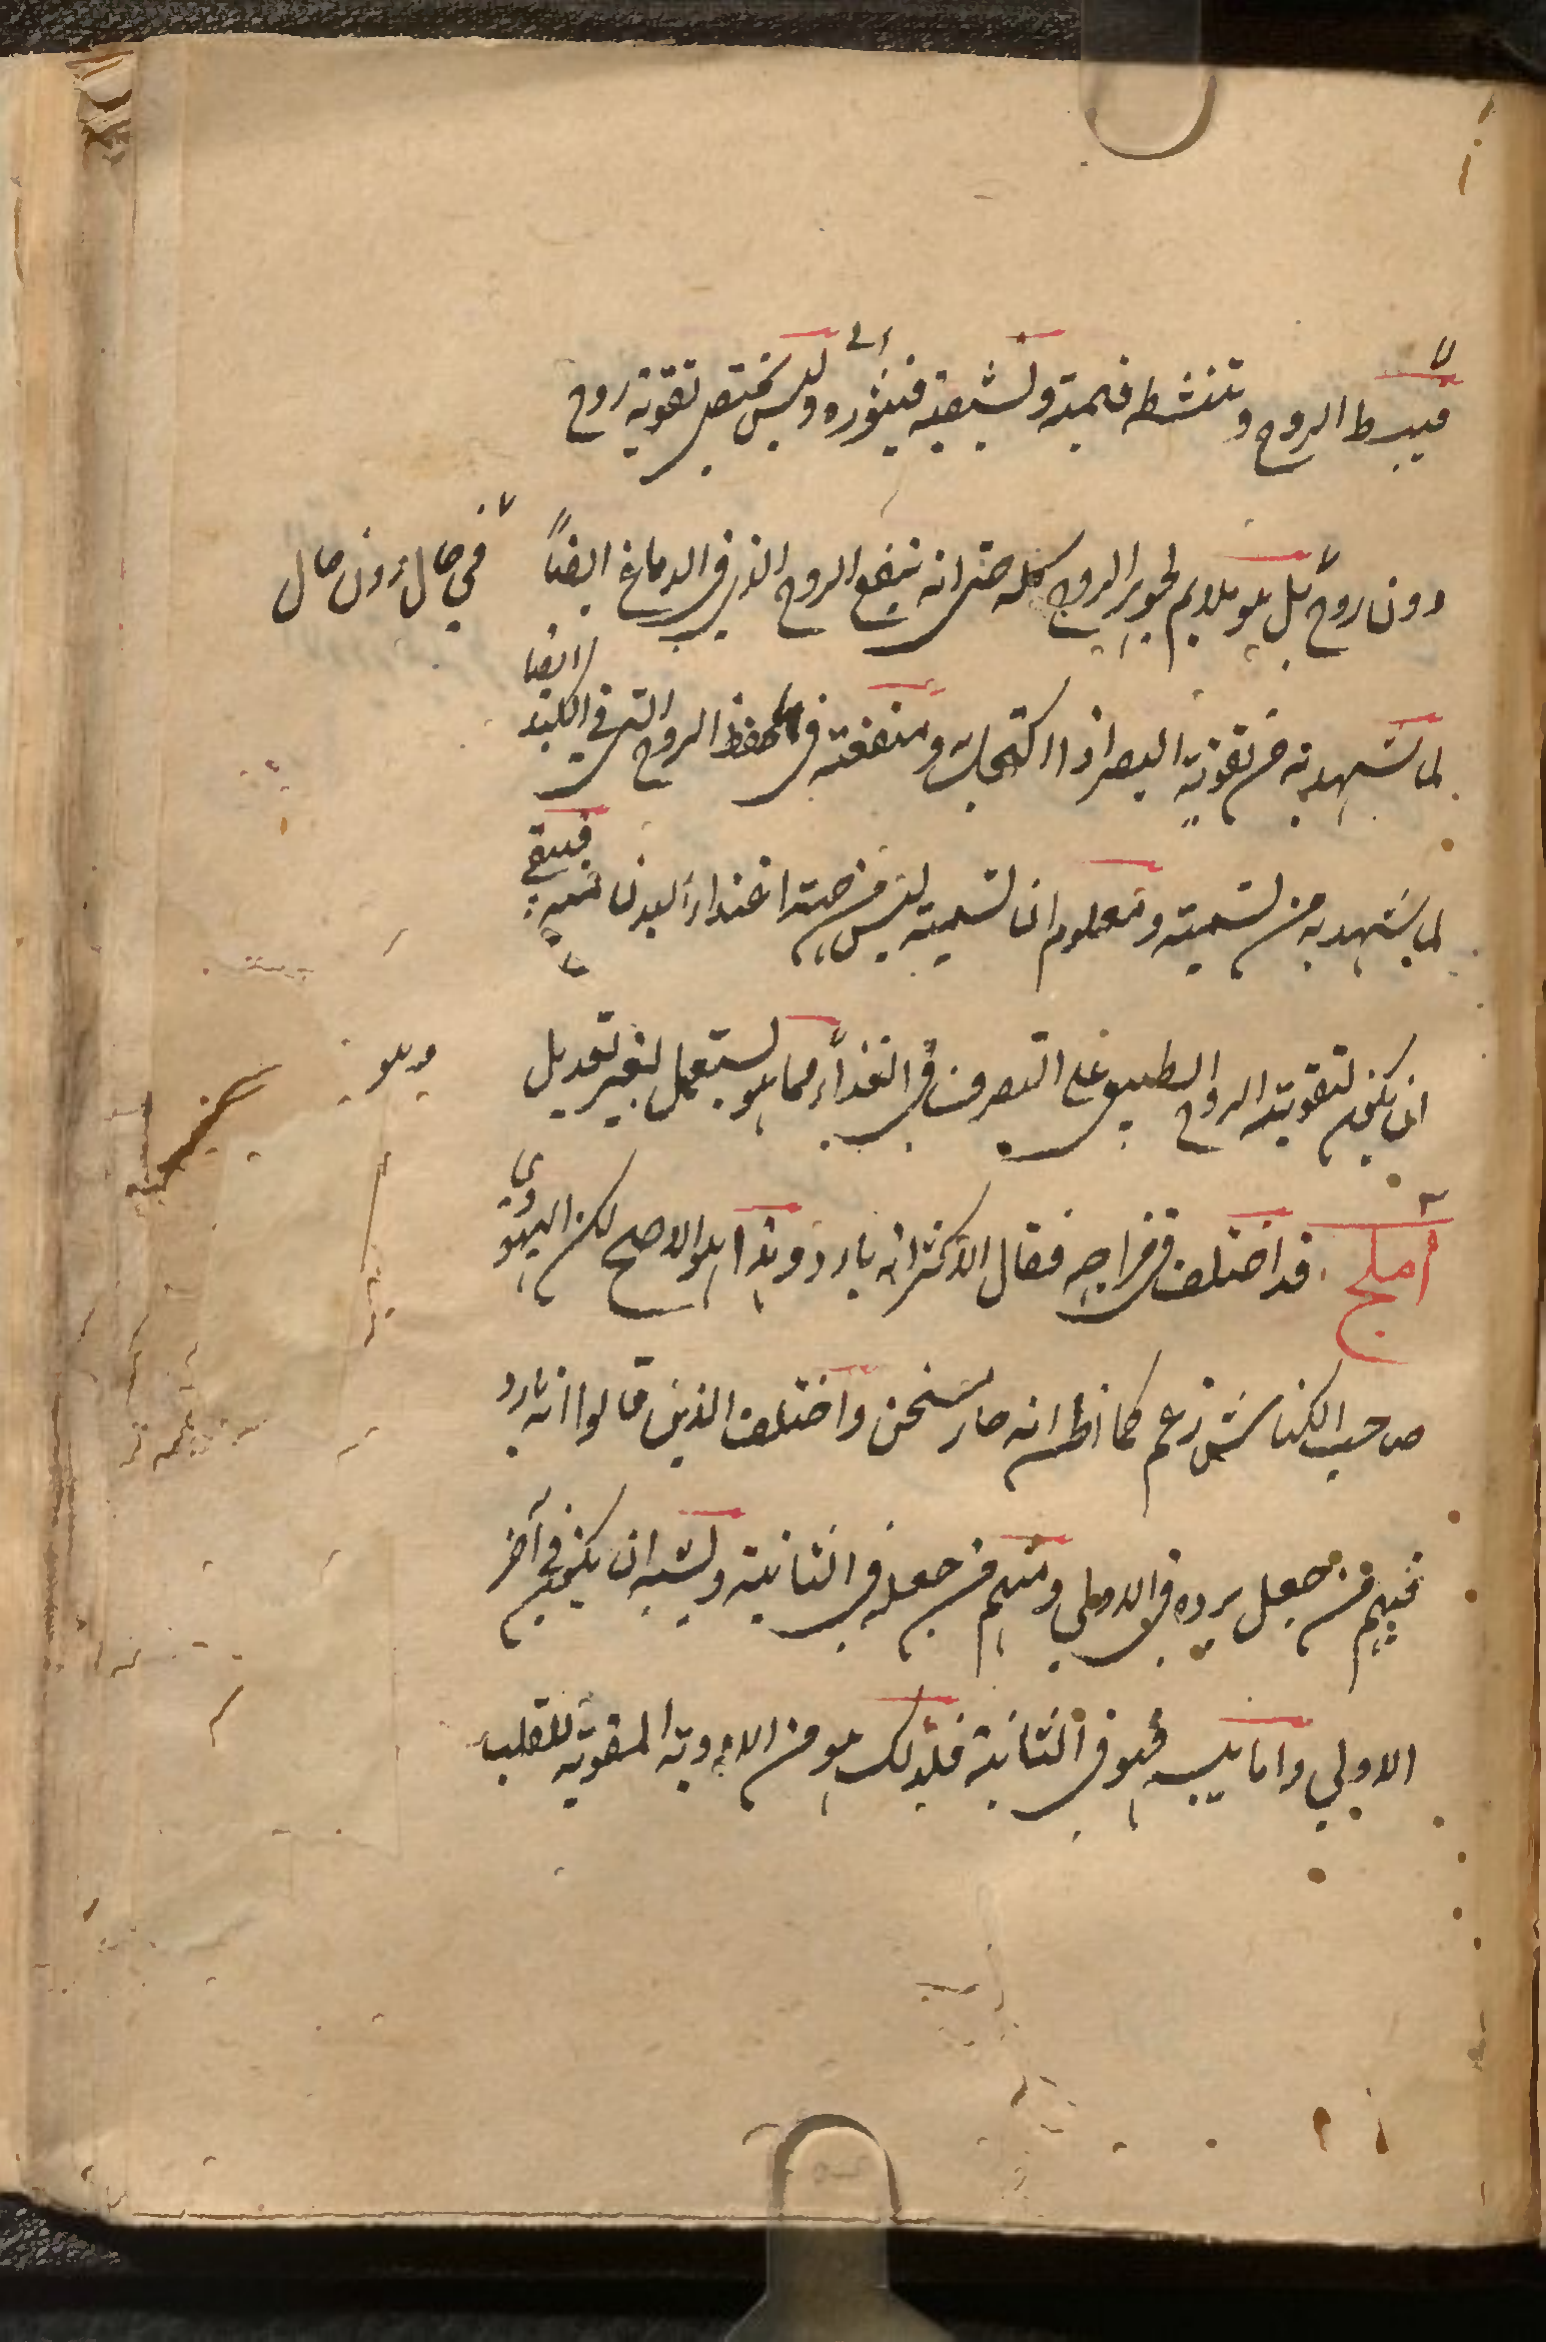 فيبسط الروح وتنشطه فيمتد ويشيعه فينوره وليس يختص تقويته روح
الى
دون روح بل هو ملايم لجوهر الروح كله حتى انه ينفع الروح الذى فى الدماغ ايضاً
في حال دون حال
لما يشهد به من تقويته البصر اذا اكتحل به ومنفعته فى حفظ الروح التى في الكبد ايضا
لما يشهد به من تسميته ومعلوم ان تسميته ليس من جهة اغتذاء البدن منه فبقى
ان يكون لتقويته الروح الطبيعى على التصرف فى الغذاء مما هو يستعمل لغير تعديل
وهو
آملج قد اختلف فى مزاجه فقال الاكثر انه بارد وهذا هو الاصح لكن اليهودي
صاحب الكناش زعم كما اظن انه حار يسخن واختلف الذين قالوا انه بارد
فمنهم من جعل برده فى الاولى ومنهم من جعله فى الثانية ويشبه ان يكون في آخر
الاولي واما يبسه فهو فى الثانية فلذلك هو من الادوية المقوية للقلب